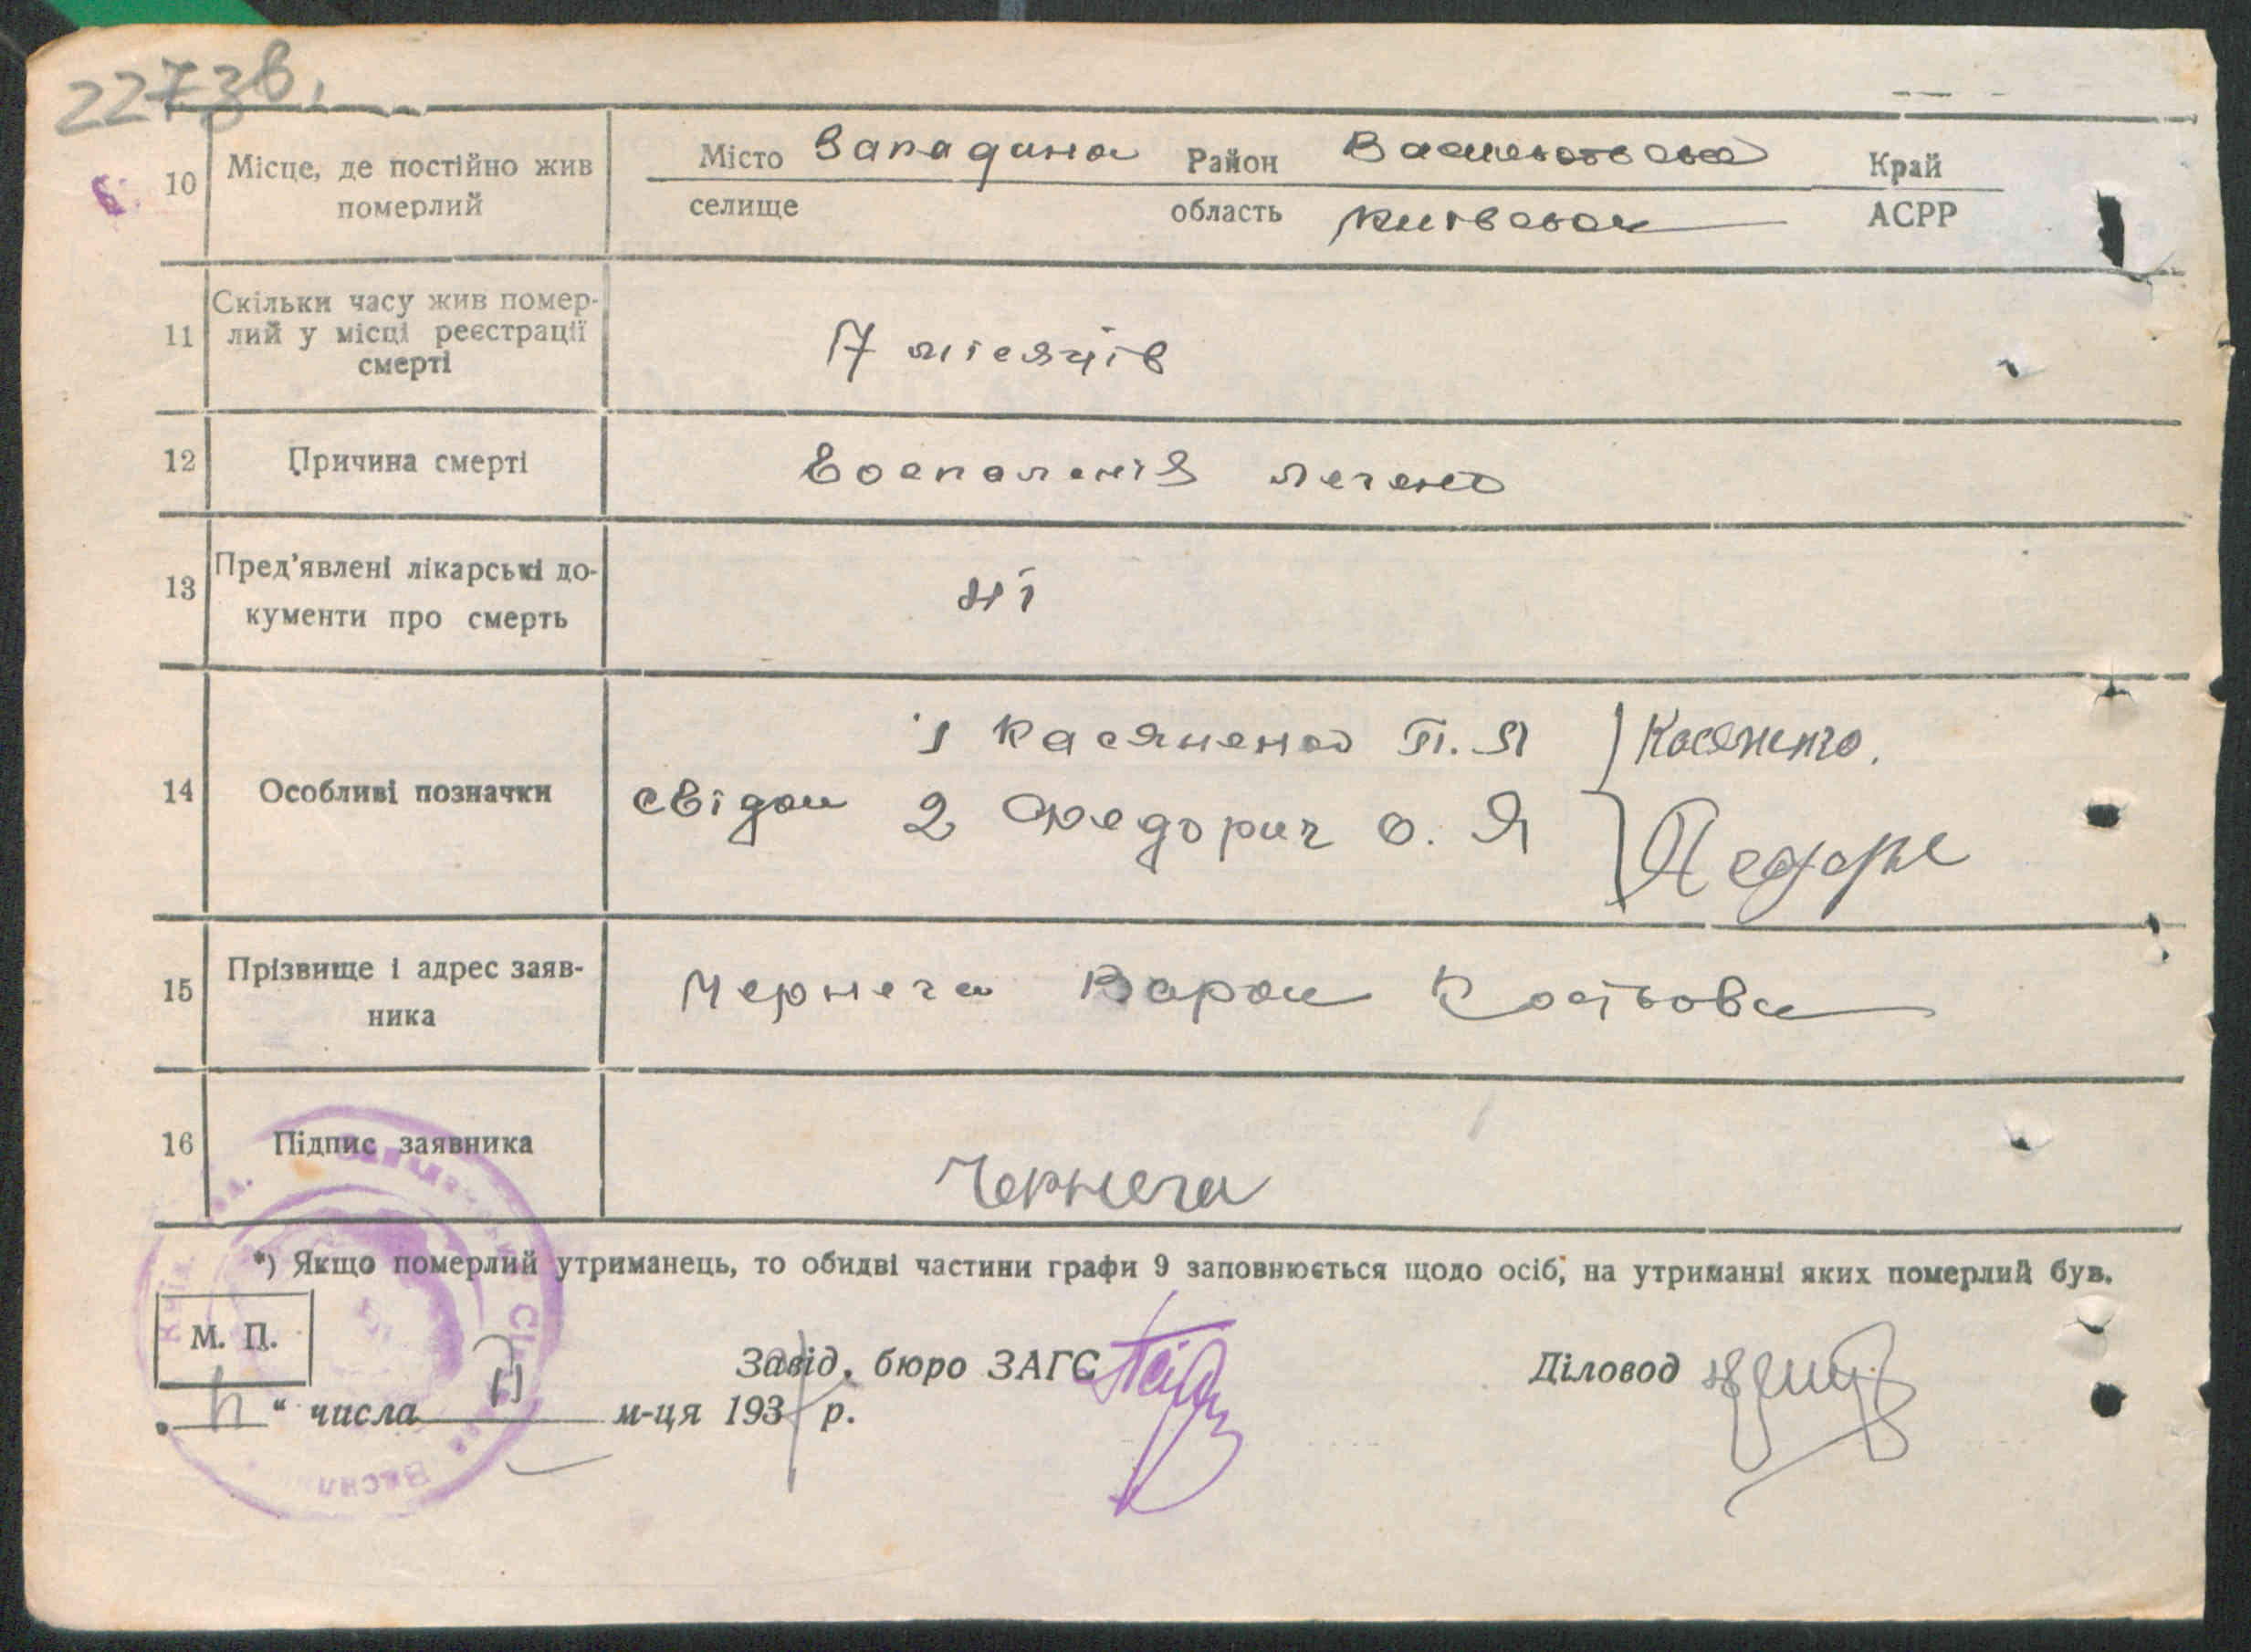 22738.
10 Місце, де постійно жив померлий
Місто Западинка Район Васильківська Край
селище область Київська АСРР
11 Скільки часу жив помер-
лий у місці реєстрації
смерті
7 місяців
12 Причина смерті Воспаленія легень
13 Пред'явлені лікарські до-
кументи про смерть
ні
1 Касяненко П. Я Касяненко.
14 Особливі позначки свідки 2 Федорич О. Я
15 Прізвище і адрес заяв-
ника
Чернега
16 Підпис заявника
Чернега
*) Якщо померлий утриманець, то обидві частини графи 9 заповнюється щодо осіб, на утриманні яких померлий був.
М. П.
Завід. бюро ЗАГС Діловод
" числа м-ця 193 р.